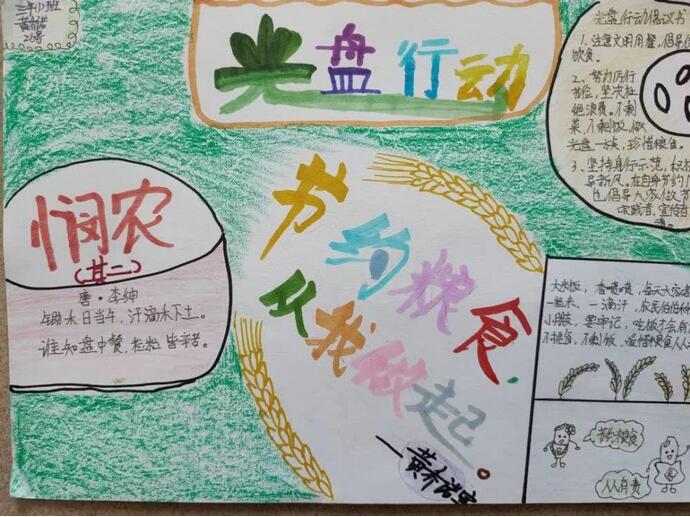 三年八班
黄乔诺
26号
光盘行动
光盘行动倡议书
1、注意文明用餐，倡导
饮食。
2、努力厉行
节俭，坚决杜
绝浪费。不剩
菜，不剩饭，做
光盘一族，珍惜粮食。
3、坚持身行示范，
导新风。在自身节约
也倡导大家做节
实践者，宣传
悯农
（其二）
唐·李绅
锄禾日当午，汗滴禾下土。
谁知盘中餐，粒粒皆辛苦。
节约粮食，
从我做起。
大米饭，喷喷，每天大家
一起来、一滴汗，农民伯伯
要牢记，吃饭才会
不挑食，不剩饭，爱惜粮食人人
节约粮食
人有责